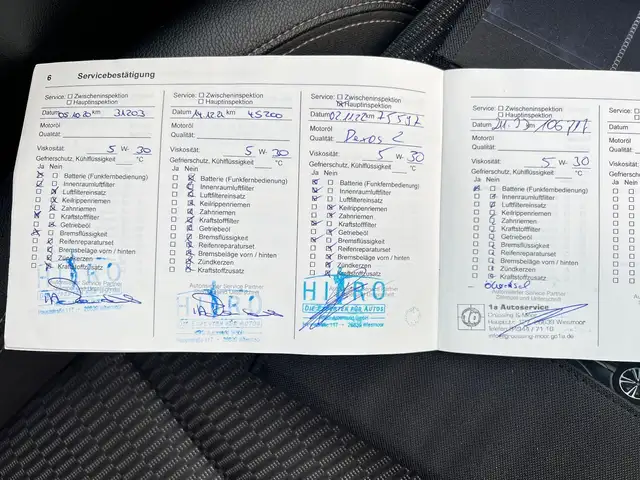 6 Servicebestätigung
Service: Zwischeninspektion
Hauptinspektion
Datum 05.10.20 km 31203
Motoröl
Qualität:
Viskosität: 5 W- 30
Gefrierschutz, Kühlflüssigkeit °C
Ja Nein
Batterie (Funkfernbedienung)
Innenraumluftfilter
Luftfiltereinsatz
Keilrippenriemen
Zahnriemen
Kraftstofffilter
Getriebeöl
Bremsflüssigkeit
Reifenreparaturset
Bremsbeläge vorn / hinten
Zündkerzen
Kraftstoffzusatz
HITRO
Service: Zwischeninspektion
Hauptinspektion
Datum 14.12.2 km 45200
Motoröl
Qualität:
Viskosität: 5 W- 30
Gefrierschutz, Kühlflüssigkeit °C
Ja Nein
Batterie (Funkfernbedienung)
Innenraumluftfilter
Luftfiltereinsatz
Keilrippenriemen
Zahnriemen
Kraftstofffilter
Getriebeöl
Bremsflüssigkeit
Reifenreparaturset
Bremsbeläge vorn / hinten
Zündkerzen
Kraftstoffzusatz
Die Experten für Autos
Service: Zwischeninspektion
Hauptinspektion
Datum 02.11.22 km
Motoröl
Qualität: Dexos 2
Viskosität: 5 W- 30
Gefrierschutz, Kühlflüssigkeit °C
Ja Nein
Batterie (Funkfernbedienung)
Innenraumluftfilter
Luftfiltereinsatz
Keilrippenriemen
Zahnriemen
Kraftstofffilter
Getriebeöl
Bremsflüssigkeit
Reifenreparaturset
Bremsbeläge vorn / hinten
Zündkerzen
Kraftstoffzusatz
HITRO
Die Experten für Autos
Service: Zwischeninspektion
Hauptinspektion
Datum km
Motoröl
Qualität:
Viskosität: 5 W- 30
Gefrierschutz, Kühlflüssigkeit °C
Ja Nein
Batterie (Funkfernbedienung)
Innenraumluftfilter
Luftfiltereinsatz
Keilrippenriemen
Zahnriemen
Kraftstofffilter
Getriebeöl
Bremsflüssigkeit
Reifenreparaturset
Bremsbeläge vorn / hinten
Zündkerzen
Kraftstoffzusatz
Autorisierter Service Partner
1a Autoservice
Service:
Datum
Motoröl
Qualität:
Viskosität:
Gefrierschutz
Ja Nein